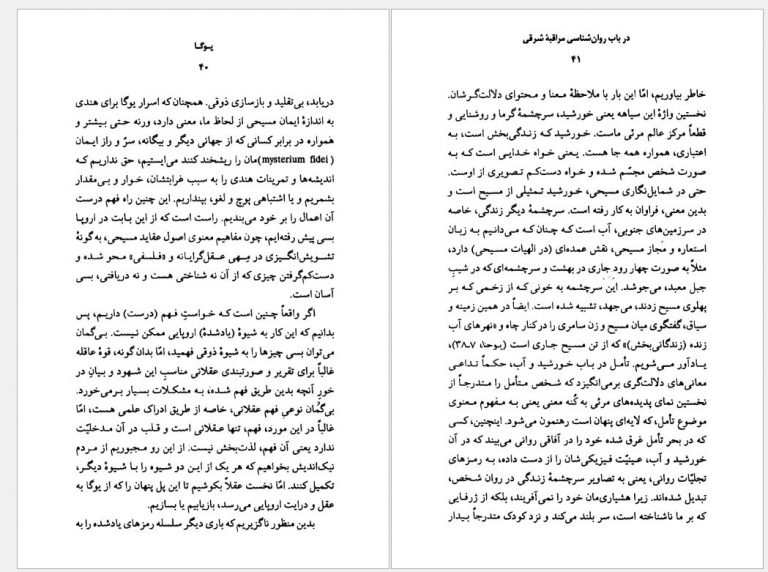 یـوگـا
۴۰
دریابد، بی‌تقلید و بازسازی ذوقی. همچنان که اسرار یوگا برای هندی
به اندازهٔ ایمان مسیحی از لحاظ ما، معنی دارد، ورنه حتـی بیشتر و
هَمواره در برابر کسانی که از جهانی دیگر و بیگانه، سرّ و راز ایمان
(mysterium fidei)مان را ریشخند کنند می‌ایستیم، حق نداریـم که
اندیشه‌ها و تمرینات هندی را به سبب غرابتشان، خـوار و بی‌مقدار
بشمریم و یا اشتباهی پوچ و لغو، بپنداریم. این چنین راه فهم درست
آن اعمال را بر خود می‌بندیم. راست است که از این بابت در اروپا
بسی پیش رفته‌ایم، چون مفاهیم معنوی اصول عقاید مسیحی، به‌گونهٔ
تشویش‌انگیـزی در مِـهی عقـل‌گرایـانه و «فلسفی» مـحو شـده و
دست‌کم‌گرفتن چیزی که از آن نه شناختی هست و نه دریافتی، بسی
آسان است.
اگر واقعاً چنیـن است کـه خـواستِ فـهم (درست) داریـم، پس
بدانیم که این کار به شیوهٔ (یادشدهٔ) اروپایی ممکن نیست. بی‌گمان
می‌توان بسی چیزها را به شیوهٔ ذوقی فهمید، امّا بدان گونه، قوهٔ عاقله
غالباً برای تقریر و صورتبندی عقلانی مناسبِ این شـهود و بیانِ در
خورِ آنچه بدین طریق فهم شده، به مشکـلات بسیار برمی‌خورد.
بی‌گمان نوعی فهم عقلانی، خاصه از طریق ادراک علمی هست، امّا
غالباً در این مورد، فهم، تنها عقـلانی است و قـلب در آن مـدخلیّت
ندارد یعنی آن فهم، لذت‌بخش نیست. از این رو مجبوریم از مـردم
نیک‌اندیش بخواهیم که هر یک از ایـن دو شیوه را با شیوهٔ دیگـر،
تکمیل کنند. امّا نخست عقلاً بکوشیم تا این پل پنهان را که از یوگا به
عقل و درایت اروپایی می‌رسد، بازیابیم یا بسازیم.
بدین منظور ناگزیریم که باری دیگر سلسله رمزهای یادشده را به
در باب روان‌شناسی مراقبهٔ شـرقی
۴۱
خاطر بیاوریم، امّا این بار با ملاحظهٔ معـنا و محتوای دلالت‌گـرشان.
نخستین واژهٔ این سیاهه یعنی خورشید، سرچشمهٔ گرما و روشنایی و
قطعاً مرکز عالم مرئی ماست. خورشید کـه زندگی‌بخش است، بـه
اعتباری، همواره همه جا هست. یـعنی خـواه خدایـی است کـه بـه
صورت شخص مجسّم شـده و خواه دست‌کـم تصویری از اوست.
حتی در شمایل‌نگاری مسیحی، خورشید تـمثیلی از مسیح است و
بدین معنی، فراوان به کار رفته است. سرچشمهٔ دیگر زندگی، خاصه
در سرزمین‌های جنوبی، آب است کـه چنان کـه می‌دانیم به زبـان
استعاره و مَجاز مسیحی، نقش عمده‌ای (در الهیات مسیحی) دارد،
مثلاً به صورت چهار رود جاری در بهشت و سرچشمه‌ای که در شیبِ
جبل معبد، می‌جوشد. این سرچشمه به خونی کـه از زخمـی کـه بر
پهلوی مسیح زدند، می‌جهد، تشبیه شده است. ایضاً در همین زمینه و
سیاق، گفتگوی میان مسیح و زن سامری را در کنار چاه و «نهرهای آب
زنده (زندگانی‌بخش)» که از تن مسیح جاری است (یـوحنا، ۷ـ۳۸)،
یـادآور مـی‌شویم. تأمـل در بـاب خـورشید و آب، حکـماً تـداعی
معانی‌های دلالت‌گری برمی‌انگیزد که شـخص مـتأمل را مـتدرجاً از
نخستین نمای پدیده‌های مرئی به کُنه معنی یعنی بـه مـفهوم مـعنوی
موضوع تأمل، که لایه‌ای پنهان است رهنمون می‌شود. اینچنین، کسی
که در بحر تأمل غرق شده خود را در آفاقی روانی می‌بیند که در آن
خورشید و آب، عینیّت فیزیکی‌شان را از دست داده، به رمـزهای
تجلیّات روانی، یعنی به تصاویر سرچشمهٔ زنـدگی در روان شـخص،
تبدیل شده‌اند. زیرا هشیاری‌مان خود را نمی‌آفریند، بلکه از ژرفایی
که بر ما ناشناخته است، سر بلند می‌کند و نزد کودک متدرجاً بیدار